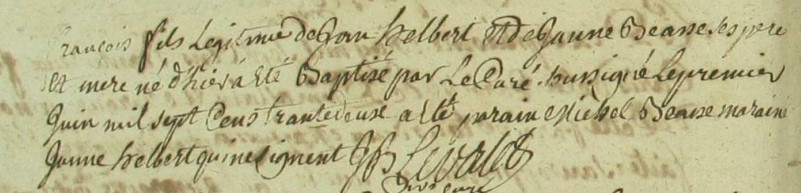 françois fils Legitime de Jan helbert et de Janne Beasse ses pere
et mere né d'hier a Eté Baptisé par Le Curé soussigné Le premier
Juin mil sept Cens trantedeuse a Eté parain Michel Beasse maraine
Janne helbert qui ne signent